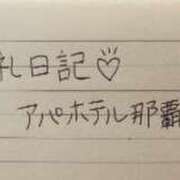 礼日記♡
アパホテル那覇